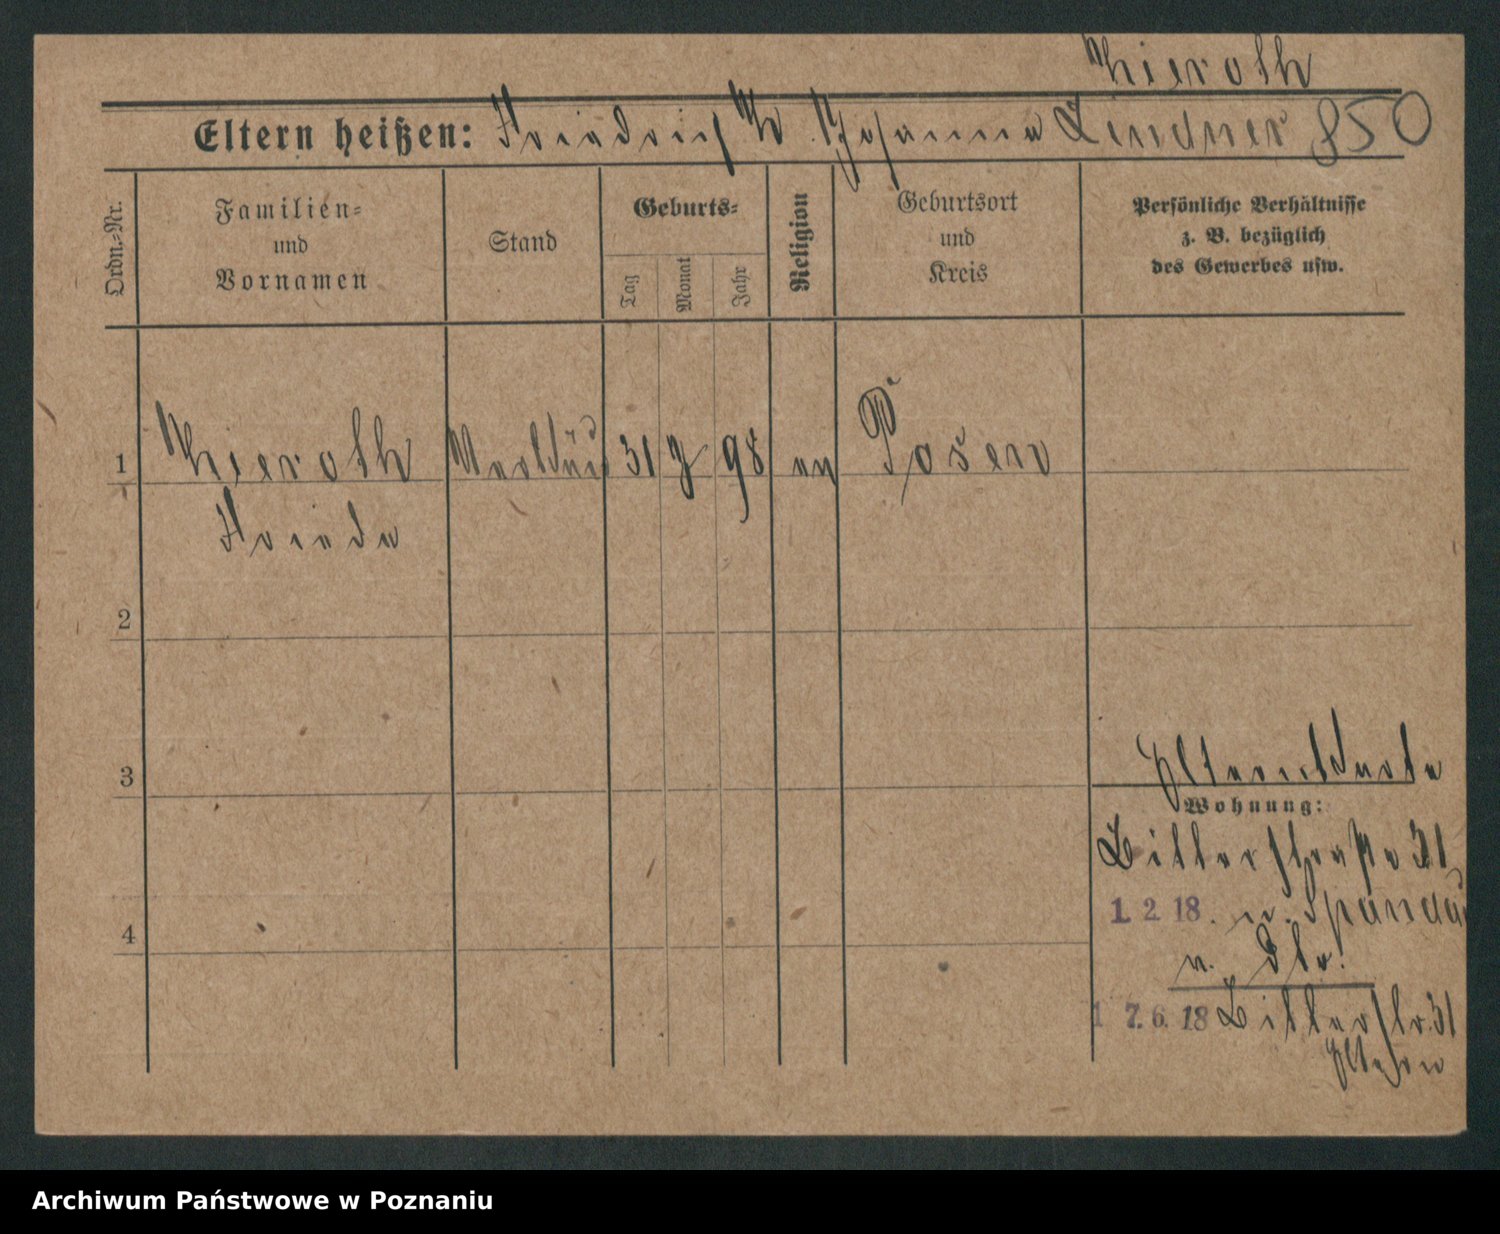 Hieroth
Eltern heißen: Friedrich H. Johanna Lindner 850
Ordn.-Nr.
Familien-
und
Vornamen
Stand
Geburts-
Tag
Monat
Jahr
Religion
Geburtsort
und
Kreis
Persönliche Verhältnisse
z. B. bezüglich
des Gewerbes usw.
1 Hieroth 31 7 98 ev Posen
Frieda
2
3
4
Elternkarte
Wohnung:
Bitterstraße 31
1. 2. 18. n. Spandau
v. Str.
1 7. 6. 18 Bitterstr. 31
Eltern
Archiwum Państwowe w Poznaniu